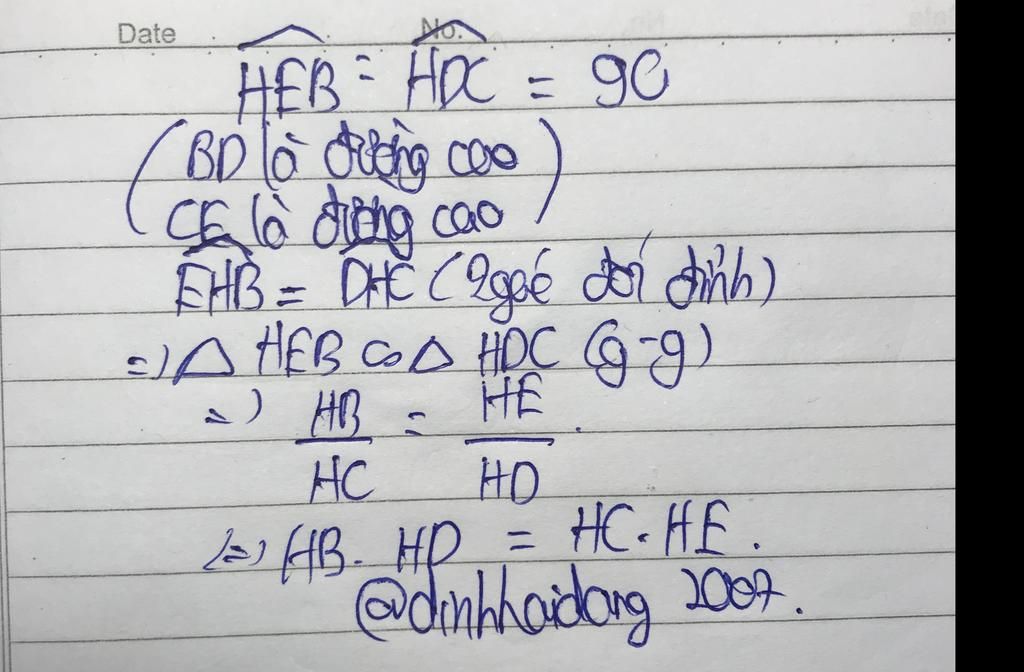 Date No.
HEB = HDC = 90
(BD là đường cao
CE là đường cao)
EHB = DHC (2 góc đối đỉnh)
=) △ HEB ∽ △ HDC (g-g)
=) HB/HC = HE/HD.
(=) HB. HD = HC. HE.
@dinhhaidang 2007.